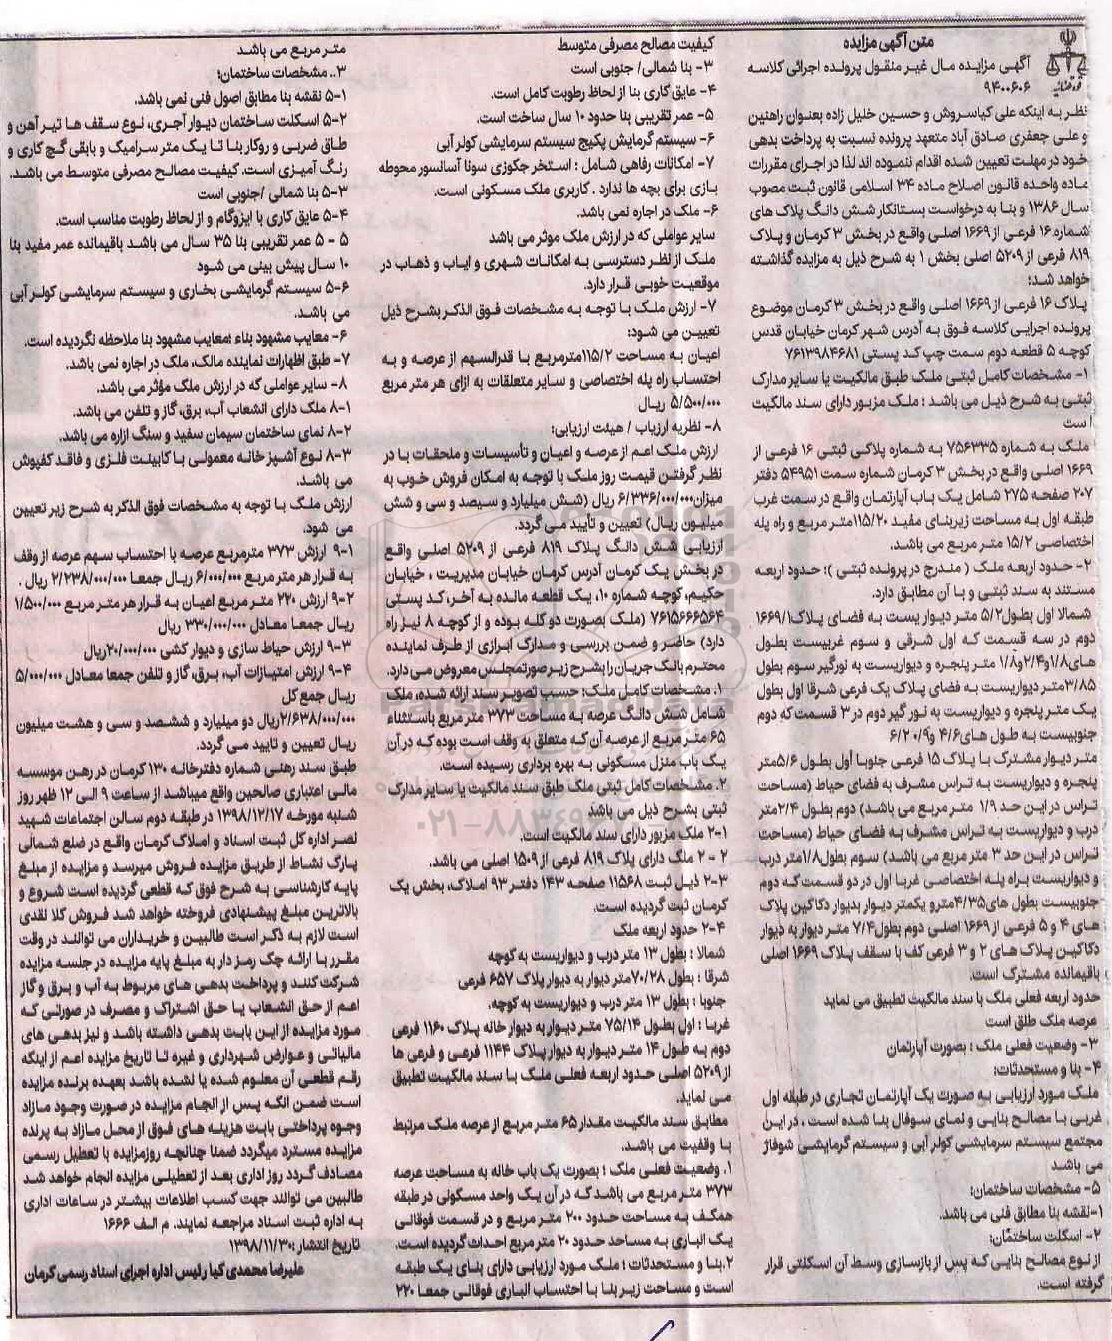 متن آگهی مزایده
آگهی مزایده مال غیر منقول پرونده اجرائی کلاسه
۹۴۰۰۶۰۶
نظر به اینکه علی کیاسروش و حسین خلیل زاده بعنوان راهنین
و علی جعفری صادق آباد متعهد پرونده نسبت به پرداخت بدهی
خود در مهلت تعیین شده اقدام ننموده اند لذا در اجرای مقررات
ماده واحده قانون اصلاح ماده ۳۴ اسلامی قانون ثبت مصوب
سال ۱۳۸۶ و بنا به درخواست بستانکار شش دانگ پلاک های
شماره ۱۶ فرعی از ۱۶۶۹ اصلی واقع در بخش ۳ کرمان و پلاک
۸۱۹ فرعی از ۵۲۰۹ اصلی بخش ۱ به شرح ذیل به مزایده گذاشته
خواهد شد:
پلاک ۱۶ فرعی از ۱۶۶۹ اصلی واقع در بخش ۳ کرمان موضوع
پرونده اجرایی کلاسه فوق به آدرس شهر کرمان خیابان قدس
کوچه ۵ قطعه دوم سمت چپ کد پستی ۷۶۱۳۹۸۴۶۸۱
۱- مشخصات کامل ثبتی ملک طبق مالکیت یا سایر مدارک
ثبتی به شرح ذیل می باشد : ملک مزبور دارای سند مالکیت
است
ملک به شماره ۷۵۶۳۳۵ به شماره پلاکی ثبتی ۱۶ فرعی از
۱۶۶۹ اصلی واقع در بخش ۳ کرمان شماره سمت ۵۴۹۵۱ دفتر
۲۰۷ صفحه ۲۷۵ شامل یک باب آپارتمان واقع در سمت غرب
طبقه اول به مساحت زیربنای مفید ۱۱۵/۲۰متر مربع و راه پله
اختصاصی ۱۵/۲ متر مربع می باشد.
۲- حدود اربعه ملک ( مندرج در پرونده ثبتی ): حدود اربعه
مستند به سند ثبتی و با آن مطابق دارد.
شمالا اول بطول۵/۲ متر دیواریست به فضای پلاک۱۶۶۹/۱
دوم در سه قسمت که اول شرقی و سوم غربیست بطول
های۱/۸و۲/۴و۱/۸ متر پنجره و دیواریست به نورگیر سوم بطول
۳/۸۵متر دیواریست به فضای پلاک یک فرعی شرقا اول بطول
یک متر پنجره و دیواریست به نور گیر دوم در ۳ قسمت که دوم
جنوبیست به طول های۴/۶ و۶/۲۰/۹
متر دیوار مشترک با پلاک ۱۵ فرعی جنوبا أول بطول ۵/۶متر
پنجره و دیواریست به تراس مشرف به فضای حیاط (مساحت
تراس در این حد ۱/۹ متر مربع می باشد) دوم بطول ۲/۴متر
درب و دیواریست به تراس مشرف به فضای حیاط (مساحت
تراس در این حد ۳ متر مربع می باشد) سوم بطول۱/۸متر درب
و دیواریست براه پله اختصاصی غربا اول در دو قسمت که دوم
جنوبیست بطول های۴/۳۵مترو یکمتر دیوار بدیوار دکاکین پلاک
های ۴ و ۵ فرعی از ۱۶۶۹ اصلی دوم بطول۷/۴ متر دیوار به دیوار
دکاکین پلاک های ۲ و ۳ فرعی کف با سقف پلاک ۱۶۶۹ اصلی
باقیمانده مشترک است.
حدود اربعه فعلی ملک با سند مالکیت تطبیق می نماید
عرصه ملک طلق است
۳- وضعیت فعلی ملک : بصورت آپارتمان
۴- بنا و مستحدثات:
ملک مورد ارزیابی به صورت یک آپارتمان تجاری در طبقه اول
غربی با مصالح بنایی و نمای سوفال بنا شده است ، در این
مجتمع سیستم سرمایشی کولر آبی و سیستم گرمایشی شوفاژ
می باشد
۵- مشخصات ساختمان:
۱-نقشه بنا مطابق فنی می باشد.
۲- اسکلت ساختمان:
از نوع مصالح بنایی که پس از بازسازی وسط آن اسکلتی قرار
گرفته است.
کیفیت مصالح مصرفی متوسط
۳- بنا شمالی/ جنوبی است
۴- عایق کاری بنا از لحاظ رطوبت کامل است.
۵- عمر تقریبی بنا حدود ۱۰ سال ساخت است.
۶- سیستم گرمایش پکیج سیستم سرمایشی کولر آبی
۷- امکانات رفاهی شامل : استخر جکوزی سونا آسانسور محوطه
بازی برای بچه ها ندارد . کاربری ملک مسکونی است.
۶- ملک در اجاره نمی باشد.
سایر عواملی که در ارزش ملک موثر می باشد
ملک از نظر دسترسی به امکانات شهری و ایاب و ذهاب در
موقعیت خوبی قرار دارد.
۷- ارزش ملک با توجه به مشخصات فوق الذکر بشرح ذیل
تعیین می شود:
اعیان به مساحت ۱۱۵/۲مترمربع با قدرالسهم از عرصه و به
احتساب راه پله اختصاصی و سایر متعلقات به ازای هر متر مربع
۵/۵۰۰/۰۰۰ ریال
۸- نظریه ارزیاب / هیئت ارزیابی:
ارزش ملک اعم از عرصه و اعیان و تأسیسات و ملحقات با در
نظر گرفتن قیمت روز ملک با توجه به امکان فروش خوب به
میزان۶/۳۳۶/۰۰۰/۰۰۰ ریال (شش میلیارد و سیصد و سی و شش
میلیون ریال) تعیین و تأیید می گردد.
ارزیابی شش دانگ پلاک ۸۱۹ فرعی از ۵۲۰۹ اصلی واقع
در بخش یک کرمان آدرس کرمان خیابان مدیریت ، خیابان
حکیم، کوچه شماره ۱۰، یک قطعه مانده به آخر، کد پستی
۷۶۱۵۶۶۶۵۶۴ (ملک بصورت دو کله بوده و از کوچه ۸ نیز راه
دارد) حاضر و ضمن بررسی و مدارک ابرازی از طرف نماینده
محترم بانک جریان را بشرح زیر صورتمجلس معروض می دارد.
۱. مشخصات کامل ملک: حسب تصویر سند ارائه شده، ملک
شامل شش دانگ عرصه به مساحت ۳۷۳ متر مربع باستثناء
۶۵ متر مربع از عرصه آن که متعلق به وقف است بوده که در آن
یک باب منزل مسکونی به بهره برداری رسیده است.
۲. مشخصات کامل ثبتی ملک طبق سند مالکیت یا سایر مدارک
ثبتی بشرح ذیل می باشد
۲-۱ ملک مزبور دارای سند مالکیت است.
۲ - ۲ ملک دارای پلاک ۸۱۹ فرعی از ۱۵۰۹ اصلی می باشد.
۲-۳ ذیل ثبت ۱۱۵۶۸ صفحه ۱۴۳ دفتر ۹۳ املاک، بخش یک
کرمان ثبت گردیده است.
۲-۴ حدود اربعه ملک
شمالا : بطول ۱۳ متر درب و دیواریست به کوچه
شرقا : بطول ۷۰/۲۸متر دیوار به دیوار پلاک ۶۵۷ فرعی
جنوبا : بطول ۱۳ متر درب و دیواریست به کوچه.
غربا : اول بطول ۷۵/۱۴ متر دیوار به دیوار خانه پلاک ۱۱۶۰ فرعی
دوم به طول ۱۴ متر دیوار به دیوار پلاک ۱۱۴۴ فرعی و فرعی ها
از ۵۲۰۹ اصلی حدود اربعه فعلی ملک با سند مالکیت تطبیق
می نماید.
مطابق سند مالکیت مقدار ۶۵ متر مربع از عرصه ملک مرتبط
با وقفیت می باشد.
۱. وضعیت فعلی ملک : بصورت یک باب خانه به مساحت عرصه
۳۷۳ متر مربع می باشد که در آن یک واحد مسکونی در طبقه
همکف به مساحت حدود ۲۰۰ متر مربع و در قسمت فوقانی
یک انباری به مساحد حدود ۲۰ متر مربع احداث گردیده است.
۲.بنا و مستحدثات : ملک مورد ارزیابی دارای بنای یک طبقه
است و مساحت زیر بنا با احتساب انباری فوقانی جمعا ۲۲۰
متر مربع می باشد
۳.. مشخصات ساختمان:
۵-۱ نقشه بنا مطابق اصول فنی نمی باشد.
۵-۲ اسکلت ساختمان دیوار آجری، نوع سقف ها تیر آهن و
طاق ضربی و روکار بنا تا یک متر سرامیک و بابقی گچ کاری و
رنگ آمیزی است. کیفیت مصالح مصرفی متوسط می باشد.
۵-۳ بنا شمالی /جنوبی است
۵-۴ عایق کاری با ایزوگام و از لحاظ رطوبت مناسب است.
۵ - ۵ عمر تقریبی بنا ۳۵ سال می باشد باقیمانده عمر مفید بنا
۱۰ سال پیش بینی می شود
۵-۶ سیستم گرمایشی بخاری و سیستم سرمایشی کولر آبی
می باشد.
۶- معایب مشهود بناء :معایب مشهود بنا ملاحظه نگردیده است.
۷- طبق اظهارات نماینده مالک، ملک در اجاره نمی باشد.
۸- سایر عواملی که در ارزش ملک مؤثر می باشد.
۸-۱ ملک دارای انشعاب آب، برق، گاز و تلفن می باشد.
۸-۲ نمای ساختمان سیمان سفید و سنگ ازاره می باشد.
۸-۳ نوع آشپز خانه معمولی با کابینت فلزی و فاقد کفپوش
می باشد.
ارزش ملک با توجه به مشخصات فوق الذکر به شرح زیر تعیین
می شود.
۹-۱ ارزش ۳۷۳ مترمربع عرصه با احتساب سهم عرصه از وقف
به قرار هر متر مربع ۶/۰۰۰/۰۰۰ ریال جمعا ۲/۲۳۸/۰۰۰/۰۰۰ ریال .
۹-۲ ارزش ۲۲۰ متر مربع اعیان به قرار هر متر مربع ۱/۵۰۰/۰۰۰
ریال جمعا معادل ۳۳۰/۰۰۰/۰۰۰ ریال
۹-۳ ارزش حیاط سازی و دیوار کشی ۲۰/۰۰۰/۰۰۰ریال
۹-۴ ارزش امتیازات آب، برق، گاز و تلفن جمعا معادل ۵/۰۰۰/۰۰۰
ریال جمع کل
۲/۶۳۸/۰۰۰/۰۰۰ریال دو میلیارد و ششصد و سی و هشت میلیون
ریال تعیین و تایید می گردد.
طبق سند رهنی شماره دفترخانه ۱۳۰ کرمان در رهن موسسه
مالی اعتباری صالحین واقع میباشد از ساعت ۹ الی ۱۲ ظهر روز
شنبه مورخه ۱۳۹۸/۱۲/۱۷ در طبقه دوم سالن اجتماعات شهید
نصر اداره کل ثبت اسناد و املاک کرمان واقع در ضلع شمالی
پارک نشاط از طریق مزایده فروش میرسد و مزایده از مبلغ
پایه کارشناسی به شرح فوق که قطعی گردیده است شروع و
بالاترین مبلغ پیشنهادی فروخته خواهد شد فروش کلا نقدی
است لازم به ذکر است طالبین و خریداران می توانند در وقت
مقرر با ارائه چک رمز دار به مبلغ پایه مزایده در جلسه مزایده
شرکت کنند و پرداخت بدهی های مربوط به آب و برق و گاز
اعم از حق انشعاب یا حق اشتراک و مصرف در صورتی که
مورد مزایده از این بابت بدهی داشته باشد و نیز بدهی های
مالیاتی و عوارض شهرداری و غیره تا تاریخ مزایده اعم از اینکه
رقم قطعی آن معلوم شده یا نشده باشد بعهده برنده مزایده
است ضمن انکه پس از انجام مزایده در صورت وجود مازاد
وجوه پرداختی بابت هزینه های فوق از محل مازاد به برنده
مزایده مسترد میگردد ضمنا چنانچه روزمزایده با تعطیل رسمی
مصادف گردد روز اداری بعد از تعطیلی مزایده انجام خواهد شد
طالبین می توانند جهت کسب اطلاعات بیشتر در ساعات اداری
به اداره ثبت اسناد مراجعه نمایند. م الف ۱۶۶۶
تاریخ انتشار :۱۳۹۸/۱۱/۳۰
علیرضا محمدی کیا رئیس اداره اجرای اسناد رسمی کرمان